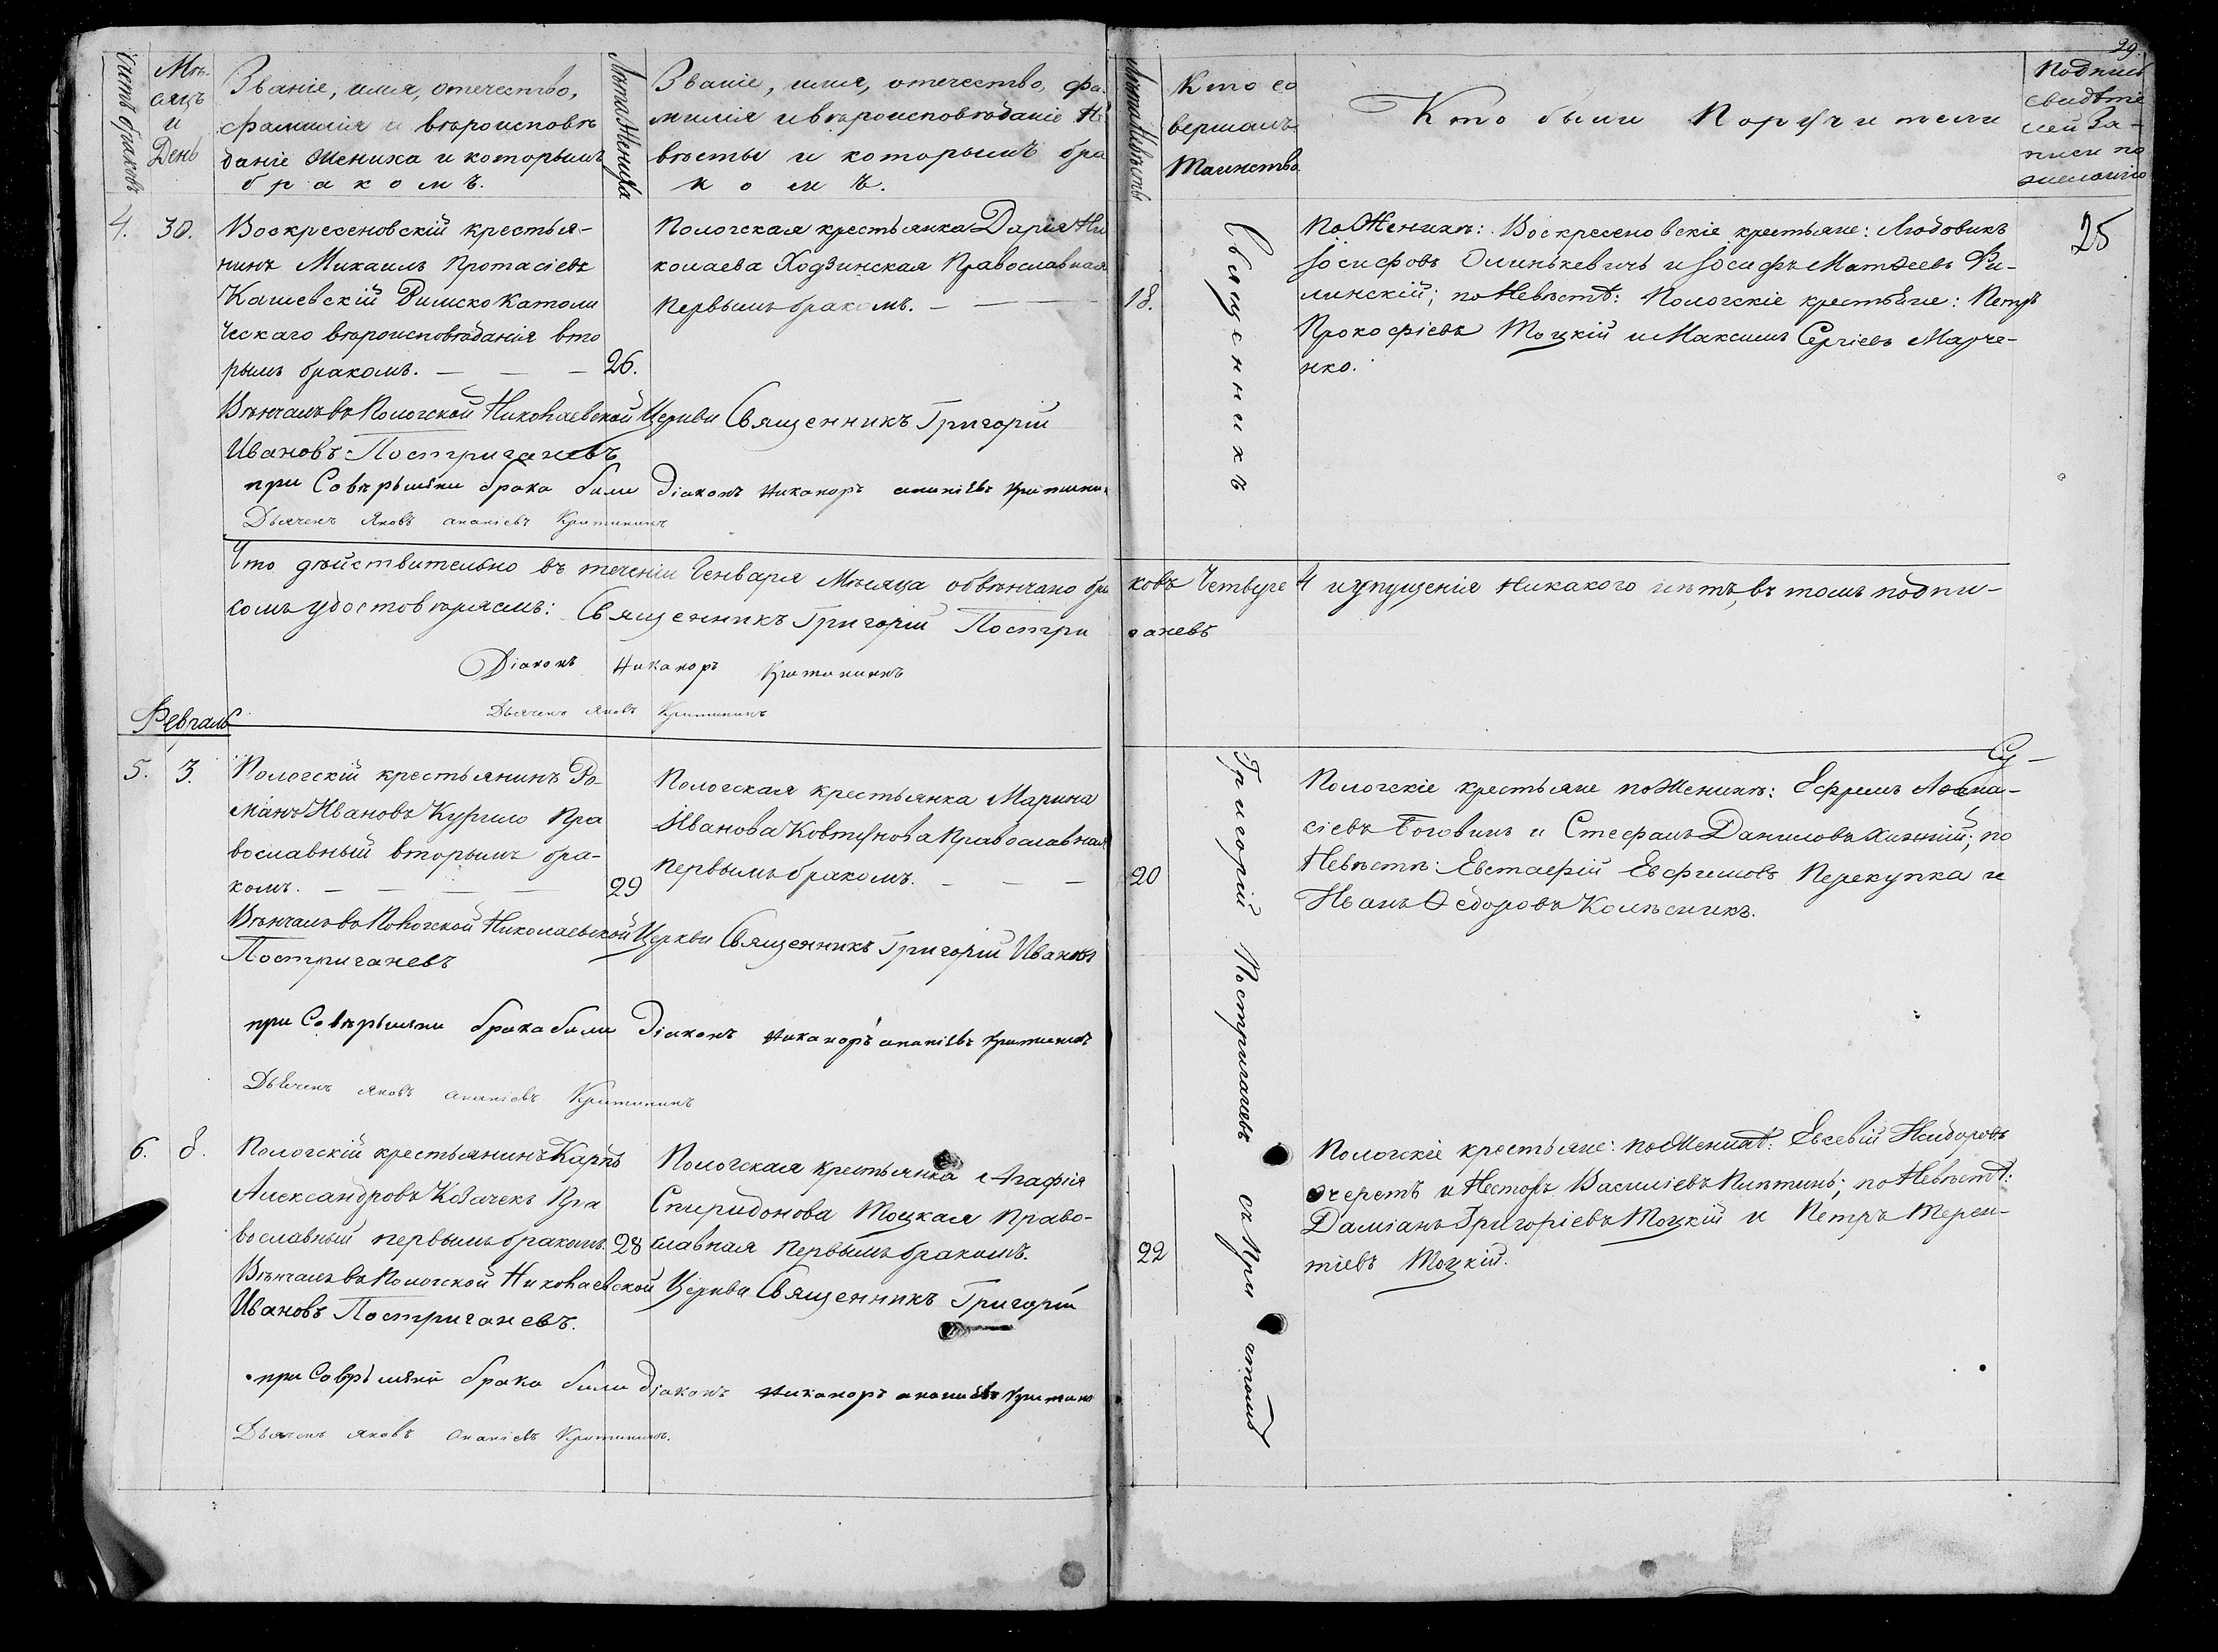 29.
Счетъ браковъ
Мѣ-
сяцъ
и
День
Званіе, имя, отечество,
фамилія и вѣроисповѣ
даніе Жениха и которымъ
бракомъ.
Лѣта Жениха
Званіе, имя, отечество, фа-
милія и вѣроисповѣданіе Не
вѣсты и которымъ бра
комъ.
Лѣта Невѣсты
Кто со
вершалъ
Таинство.
Кто были Поручители
Подпись
свидѣте
лей За-
писи по
желанію
4. 30.
Воскресеновскій крестья-
нинъ Михаилъ Протасіевъ
Римско Католи
ческаго вѣроисповѣданія вто
рымъ бракомъ. — — — 26.
Пологская крестьянка Дарія Ни
колаева Ходзинская Православная
первымъ бракомъ. — —
18.
По Женихѣ: Воскресеновскіе крестьяне: Людовикъ
Іосифовъ Олинькевичъ и Іосифъ Матѳеевъ Фи-
линскій; по Невѣстѣ: Пологскіе крестьяне: Петръ
Прокофіевъ Тоцкій и Максимъ Сергіевъ Марче-
нко.
25
Вѣнчалъ въ Пологской Николаевской Церкви Священникъ Григорій
Ивановъ Постригачевъ
при Совѣршѣни брака били Діаконъ Никаноръ ананіевъ
Дьячекъ Яковъ ананіевъ
Что дѣйствительно въ теченіи Генваря Мѣсяца обвѣнчано бра
ковъ Четыре 4 и упущенія никакого нѣтъ, въ томъ подпи-
сомъ удостовѣряемъ: Священникъ Григорій Постри
гачевъ
Діаконъ Никаноръ
Дьячекъ Яковъ
Февраль
5. 3.
Пологскій крестьянинъ Ро-
манъ Ивановъ Курило Пра
вославный вторымъ бра-
комъ. — — — — 29
Пологская крестьянка Марина
Иванова Ковтунова Православная
первымъ бракомъ. — — —
20
Пологскіе крестьяне по Женихѣ: Ефремъ Аѳана-
сіевъ и Стефанъ Даниловъ Хижній; по
Невѣстѣ: Евстафій Евфимовъ Перекупка и
Иванъ Ѳедоровъ Колѣсникъ.
Вѣнчалъ въ Пологской Николаевской Церкви Священникъ Григорій Ивановъ
Постригачевъ
при Совѣршѣни брака били Діаконъ Никаноръ ананіевъ
Дьячекъ Яковъ ананіевъ
6. 8.
Пологскій крестьянинъ Карпъ
Александровъ Козачекъ Пра
вославный первымъ бракомъ. 28
Пологская крестьянка Агафія
Спиридонова Тоцкая Право-
славная первымъ бракомъ.
22
Пологскіе крестьяне: по Женихѣ: Евсевій Исидоровъ
Очеретъ и Несторъ Василіевъ; по Невѣстѣ:
Даміанъ Григоріевъ Тоцкій и Петръ Терен-
тіевъ Тоцкій.
Вѣнчалъ въ Пологской Николаевской Церкви Священникъ Григорій
Ивановъ Постригачевъ.
при Соврѣшѣни брака били Діаконъ Никаноръ ананіевъ
Дьячекъ Яковъ Ананіевъ
Священникъ
Григорій Постригачевъ съ Причтомъ